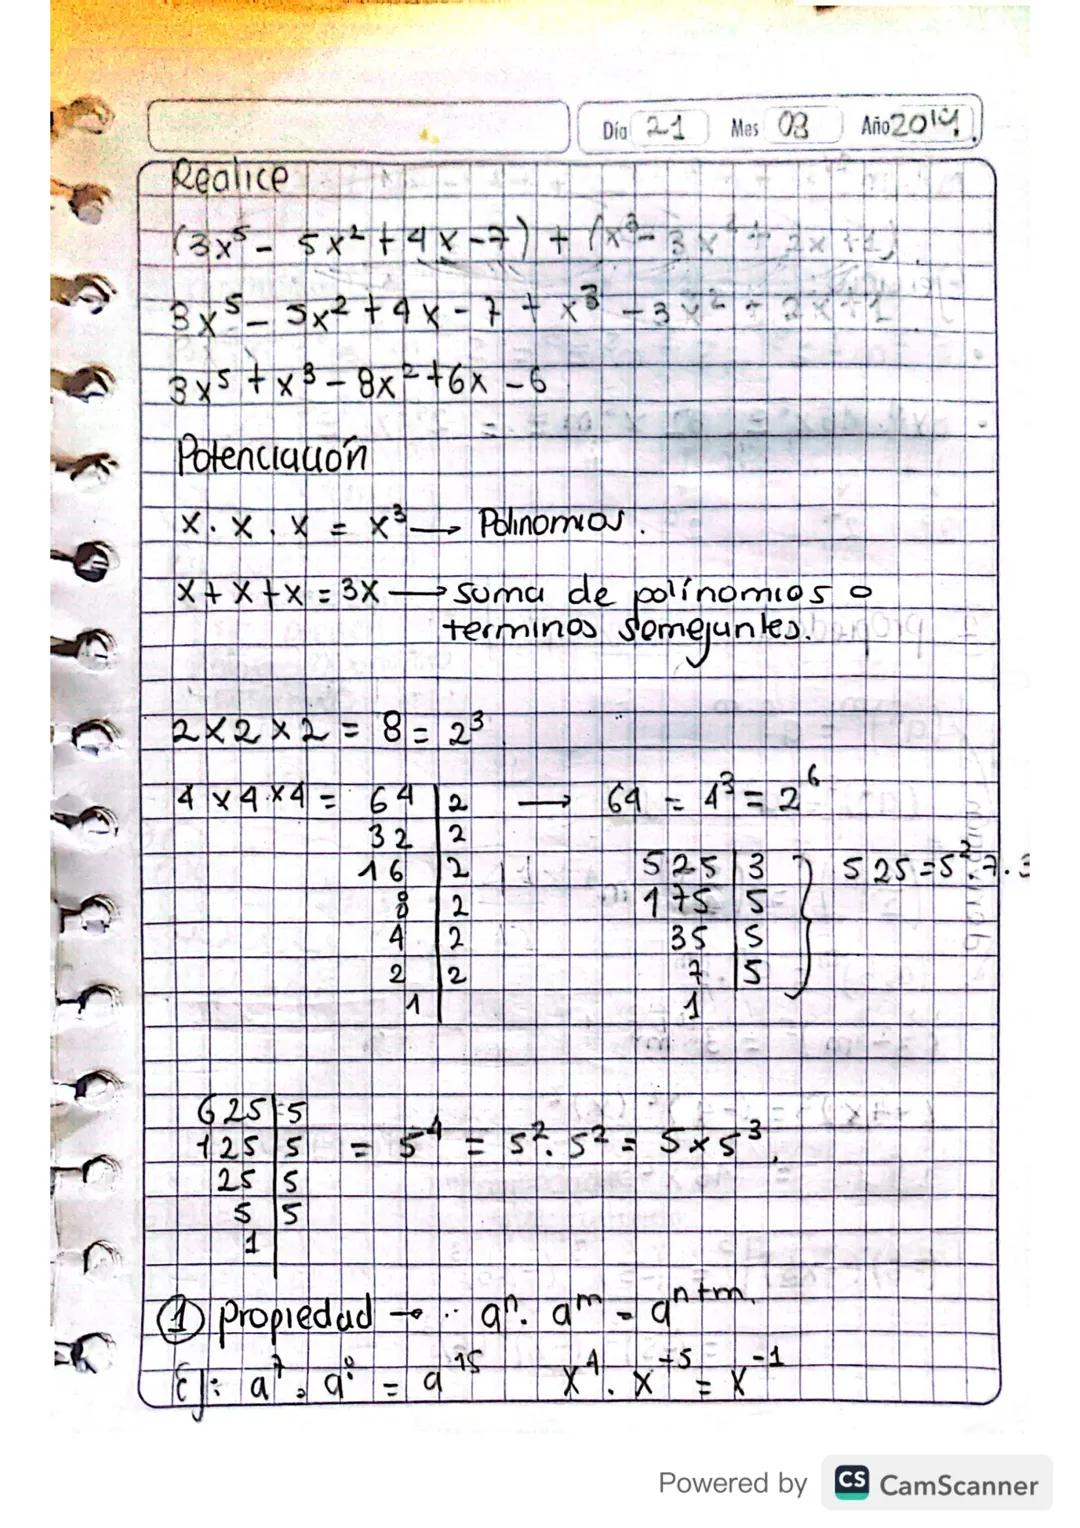 Día 21 Mes 03 Año 2019
Realice
(3x⁵ - 5x² + 4x - 7) + (x³ - 3x² + 2x + 1)
3x⁵ - 5x² + 4x - 7 + x³ - 3x² + 2x + 1
3x⁵ + x³ - 8x² + 6x - 6
Potenciación
x . x . x = x³ → Polinomios.
x + x + x = 3x → Suma de polínomios o
terminos semejantes.
2 × 2 × 2 = 8 = 2³
4 × 4 × 4 = 64 | 2 → 64 = 4³ = 2⁶
32 | 2
16 | 2 525 | 3 } 525 = 5² . 7 . 3
8 | 2 175 | 5
4 | 2 35 | 5
2 | 2 7 | 5
1 1
625 | 5
125 | 5 = 5⁴ = 5² . 5² = 5 × 5³
25 | 5
5 | 5
1
① propiedad → aⁿ . aᵐ = aⁿ⁺ᵐ.
Ej: a⁷ . a⁸ = a¹⁵ x⁴ . x⁻⁵ = x⁻¹
Powered by CS CamScanner